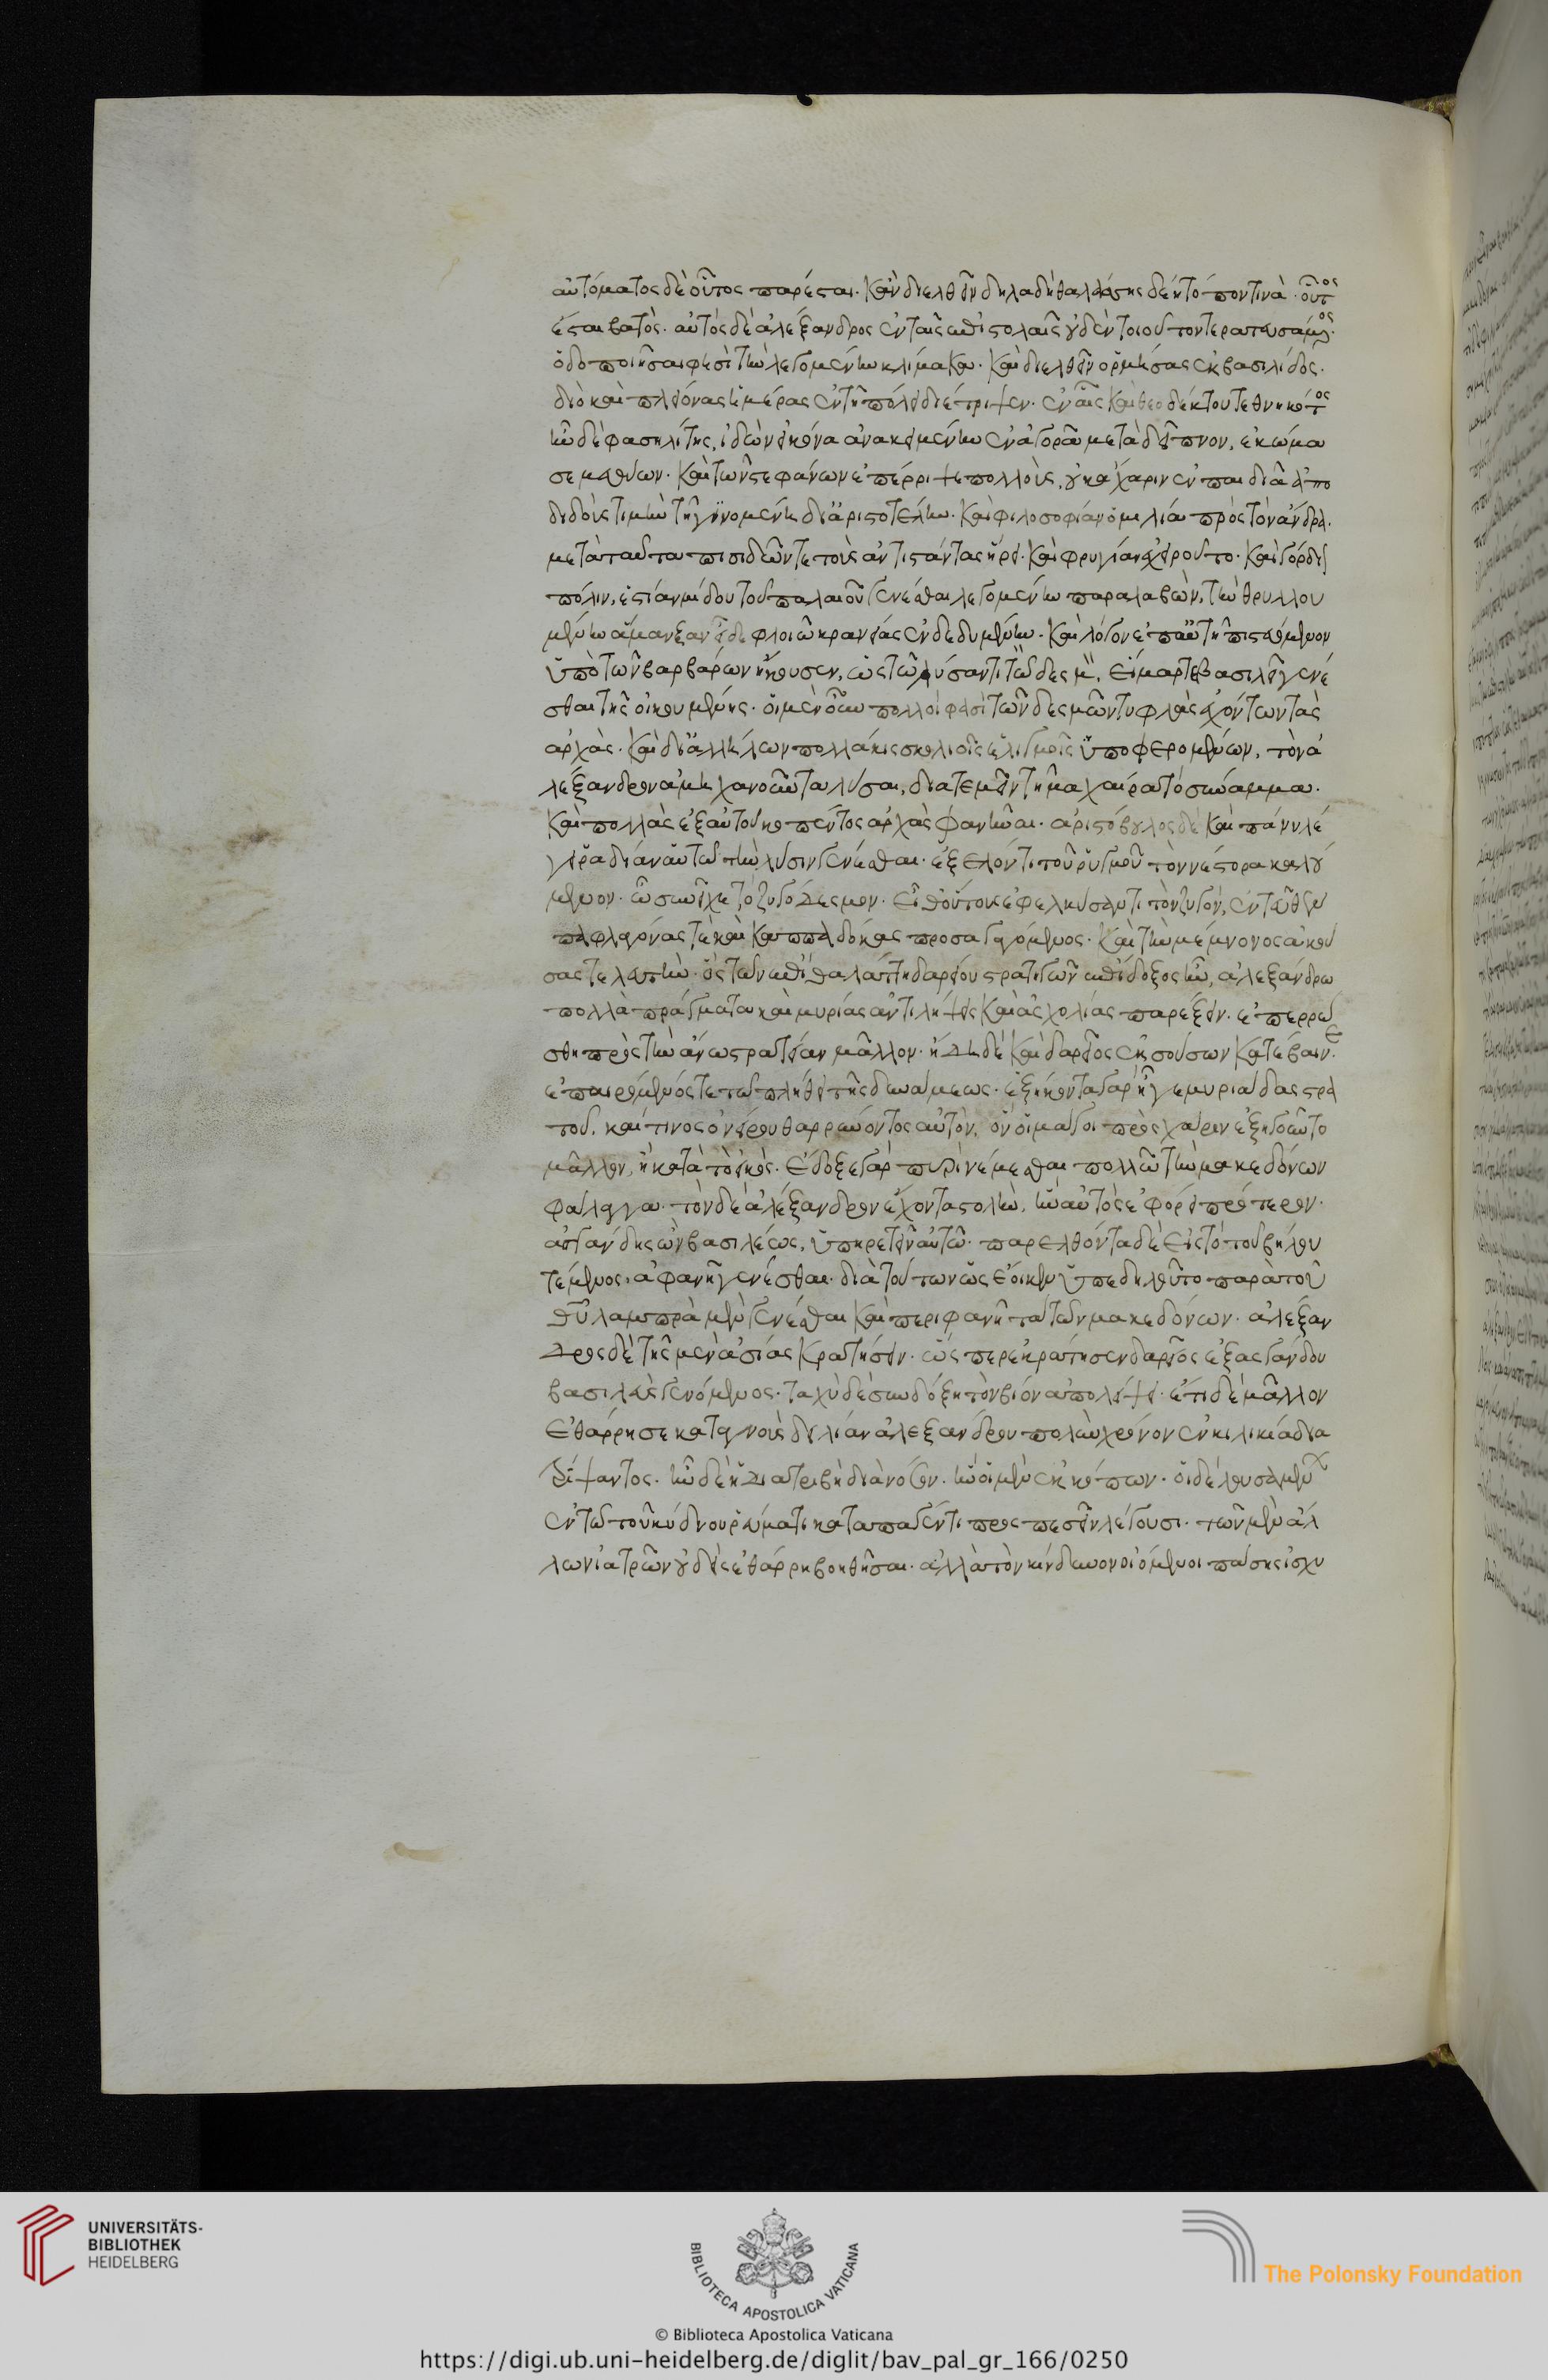 αὐτόματος δὲ οὗτος παρέσται. κἂν διελθεῖν δηλαδὴ θαλάσσης δέη τόπον τινὰ. οὗτος
ἔσται βατὸς. αὐτὸς δὲ ἀλέξανδρος ἐν ταῖς ἐπιστολαῖς οὐδὲν τοιοῦτον τερατευσάμενος.
ὁδοποιῆσαι φησὶ τὴν λεγομένην κλίμακα. καὶ διελθεῖν ὁρμήσας ἐκ βασιλίδος.
διὸ καὶ πλείονας ἡμέρας ἐν τῇ πόλει διέτριψεν. ἐν αἷς καὶ θεοδέκτου τεθνηκότος
ἦν δὲ φασηλίτης, ἰδὼν εἰκόνα ἀνακειμένην ἐν ἀγορᾶ μετὰ δεῖπνον, ἐκώμα
σε μεθύων. καὶ τῶν στεφάνων ἐπέρριψε πολλοὺς, οὐκ ἄχαριν ἐν παιδιᾶ ἀπο
διδοὺς τιμὴν τῇ γινομένη δι' ἀριστοτέλην. καὶ φιλοσοφίαν ὁμιλία πρὸς τὸν ἄνδρα.
μετὰ ταῦτα πισιδῶν τε τοὺς ἀντιστάντας ᾕρει. καὶ φρυγίαν ἐχειροῦτο. καὶ γόρδιον
πόλιν, ἑστίαν μίδου τοῦ παλαιοῦ γενέσθαι λεγομένην παραλαβὼν, τὴν θρυλλου
μένην ἅμαξαν εἶδε φλοιῶ κρανείας ἐνδεδυμένην. καὶ λόγον ἐπ' αὐτῇ πιστευόμενον
ὑπὸ τῶν βαρβάρων ἤκουσεν, ὡς τῶ λύσαντι τῶ δεσμ, εἵμαρται βασιλεῖ γενέ
σθαι τῆς οἰκουμένης. οἱ μὲν οὖν πολλοί φασὶ τῶν δεσμῶν τυφλὰς ἐχόντων τὰς
ἀρχὰς. καὶ δι' ἀλλήλων πολλάκις σκολιοῖς ἑλιγμοῖς ὑποφερομένων, τὸν ἀ
λέξανδρον ἀμηχανοῦντα λῦσαι, διατεμεῖν τῇ μαχαίρα τὸ σύναμμα.
καὶ πολλὰς ἐξ αὐτοῦ κοπέντος ἀρχὰς φανῆναι. ἀριστόβουλος δὲ καὶ πάνυ λέ
γει ῥαδίαν αὐτῶ τὴν λύσιν γενέσθαι. ἐξελόντι τοῦ ῥυμοῦ τὸν νέστορα καλού
μενον. ὧ συνεῖχε τὸ ζυγόδεσμον. εἶθ' οὕτως ἐφελκύσαντι τὸν ζυγόν, ἐντεῦθεν
παφλαγόνας τὲ καὶ καππαδόκας προσαγαγόμενος. καὶ τὴν μέμνονος ἀκού
σας τελευτὴν. ὃς τῶν ἐπὶ θαλάττη δαρείου στρατηγῶν ἐπίδοξος ἦν, ἀλεξάνδρω
πολλὰ πράγματα καὶ μυρίας ἀντιλήψεις καὶ ἀσχολίας παρέξειν. ἐπερρώ
σθη πρὸς τὴν ἄνω στρατείαν μᾶλλον. ἤδη δὲ καὶ δαρεῖος ἐκ σούσων κατέβαινε.
ἐπαιρόμενός τε τῶ πλήθει τῆς δυνάμεως. ἑξήκοντα γὰρ ἦγε μυριάδας στρα
τοῦ. καί τινος ὀνείρου θαρρύνοντος αὐτὸν, ὃν οἱ μάγοι πρὸς χάριν ἐξηγοῦντο
μᾶλλον, ἢ κατὰ τὸ εἰκὸς. ἔδοξε γὰρ πυρὶ νέμεσθαι πολλῶ τὴν μακεδόνων
φάλαγγα. τὸν δὲ ἀλέξανδρον ἔχοντα στολὴν, ἣν αὐτὸς ἐφόρει πρότερον.
ἀσγάνδης ὢν βασιλέως, ὑπηρετεῖν αὐτῶ. παρελθόντα δὲ εἰς τὸ τοῦ βήλου
τέμενος. ἀφανῆ γενέσθαι. διὰ τούτων ὡς ἔοικεν ὑπεδηλοῦτο παρὰ τοῦ
θεοῦ λαμπρὰ μὲν γενέσθαι καὶ περιφανῆ τὰ τῶν μακεδόνων. ἀλέξαν
δρος δὲ τῆς μὲν ἀσίας κρατήσειν. ὥσπερ ἐκράτησεν δαρεῖος ἐξ ἀσγάνδου
βασιλεὺς γενόμενος. ταχὺ δὲ σὺν δόξη τὸν βίον ἀπολείψει. ἔτι δὲ μᾶλλον
ἐθάρρησε καταγνοὺς δειλίαν ἀλεξάνδρου πολὺν χρόνον ἐν κιλικία δια
τρίψαντος. ἦν δὲ ἡ διατριβὴ διὰ νόσον. ἣν οἱ μὲν ἐκ κόπων. οἱ δὲ λουσαμένω
ἐν τῶ τοῦ κύδνου ῥεύματι καταπαγέντι προσπεσεῖν λέγουσι. τῶν μὲν ἄλ
λων ἰατρῶν οὐδεὶς ἐθάρρη βοηθῆσαι. ἀλλὰ τὸν κίνδυνον οἰόμενοι πάσης ἰσχυ
UNIVERSITÄTS-
BIBLIOTHEK
HEIDELBERG
BIBLIOTECA APOSTOLICA VATICANA
The Polonsky Foundation
© Biblioteca Apostolica Vaticana
https://digi.ub.uni-heidelberg.de/diglit/bav_pal_gr_166/0250